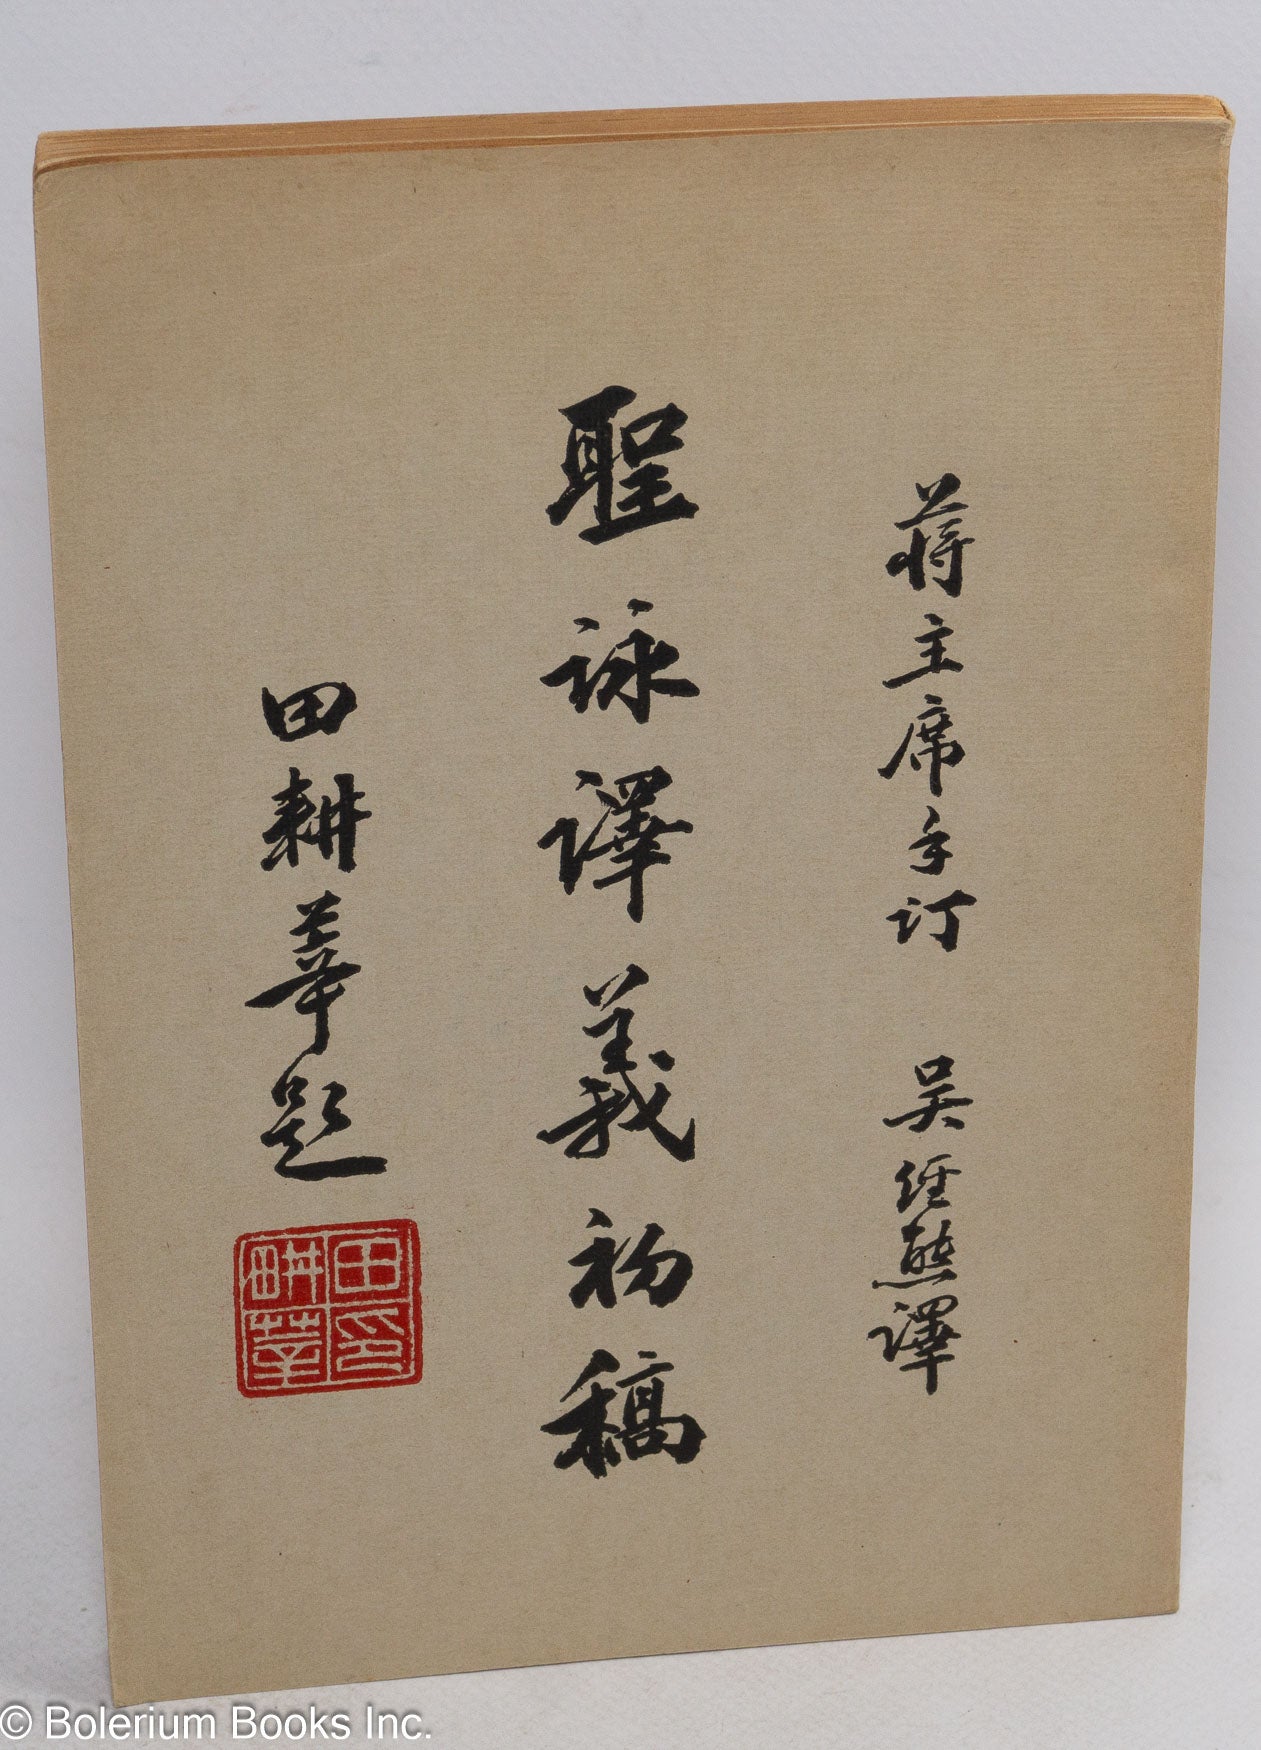 蔣主席手订 吳經熊譯
聖詠譯義初稿
田耕莘題
田印
耕莘
© Bolerium Books Inc.